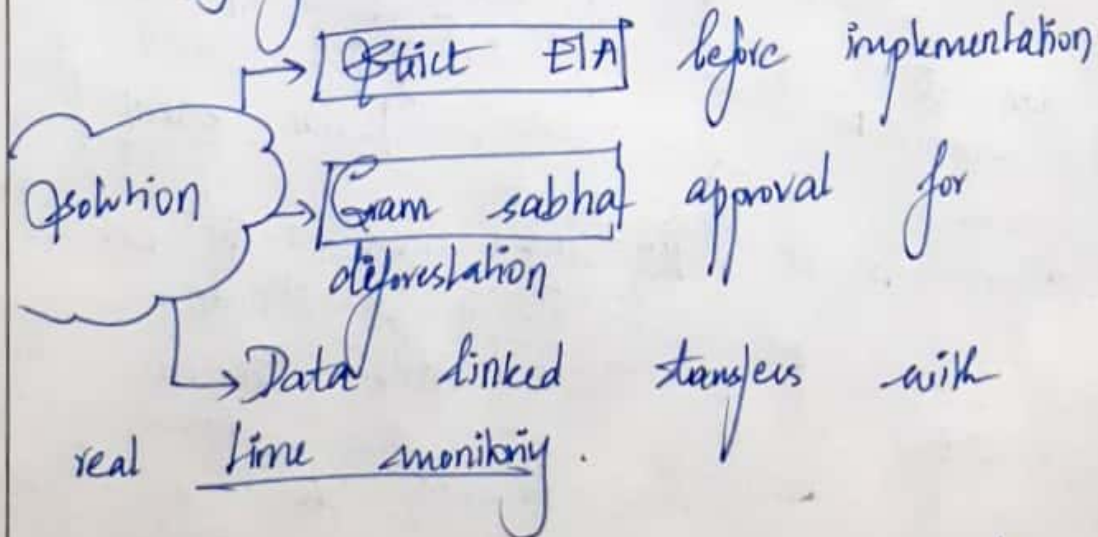 Strict EIA before implementation
solution
Gram sabha approval for
deforestation
Data linked transfers with
real time monitoring.